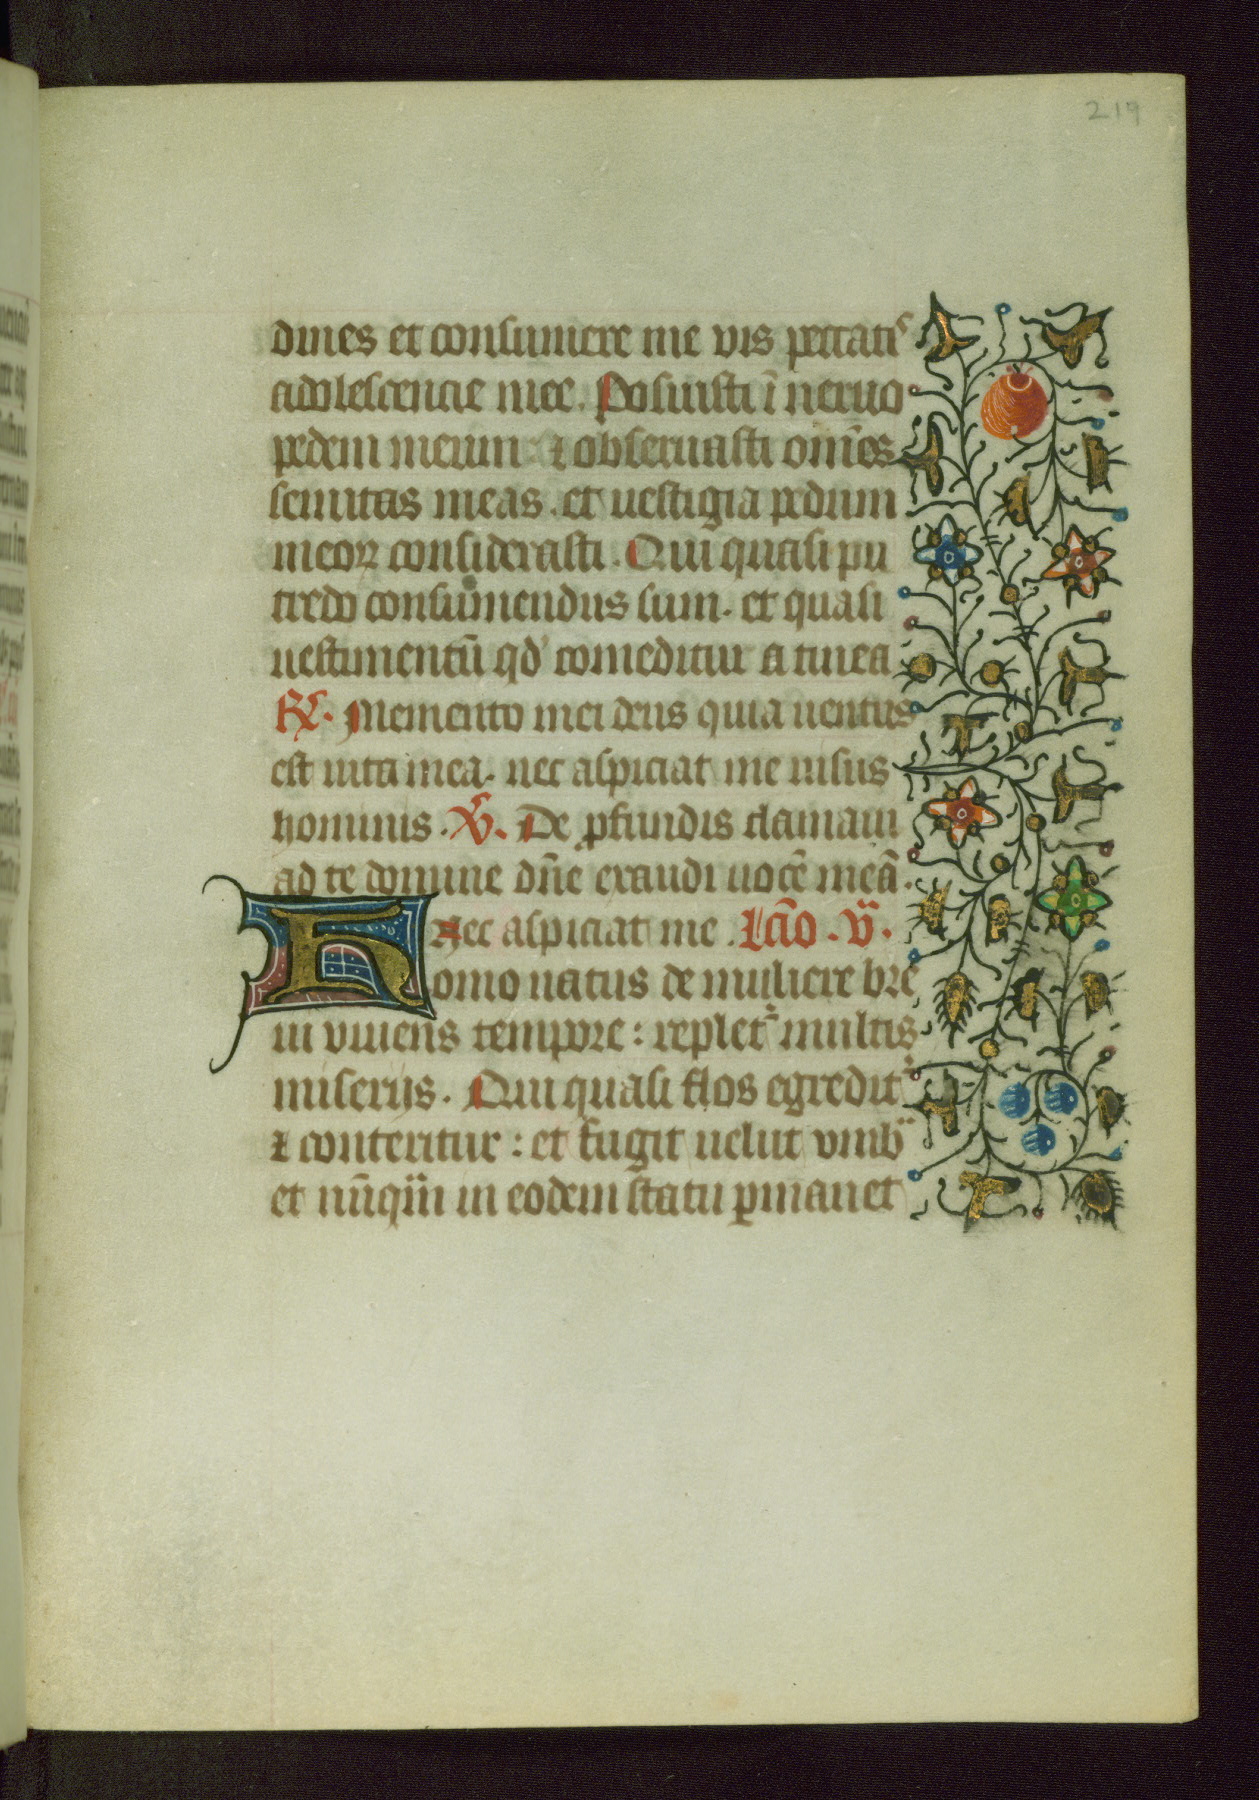 219
dines et consumere me vis peccatis
adolescencie mee. Posuisti ī neruo
pedem meum ⁊ obseruasti om̄es
semitas meas. et uestigia pedum
meoꝝ considerasti. Qui quasi pu
tredo consumendus sum. et quasi
uestimentū qd' comeditur a tinea
R̸. Memento mei deus quia uentus
est uita mea. nec aspiciat me uisus
hominis. V̸. De ꝓfundis clamaui
ad te domine dn̄e exaudi uocē meā.
Nec aspiciat me. Lc̄io. v.
Homo natus de muliere bre
ui viuens tempore: replet᷑ multis
miserijs. Qui quasi flos egredit᷑
⁊ conteritur: et fugit uelut vmbᷓ
et nūqᷓm in eodem statu ꝑmanet